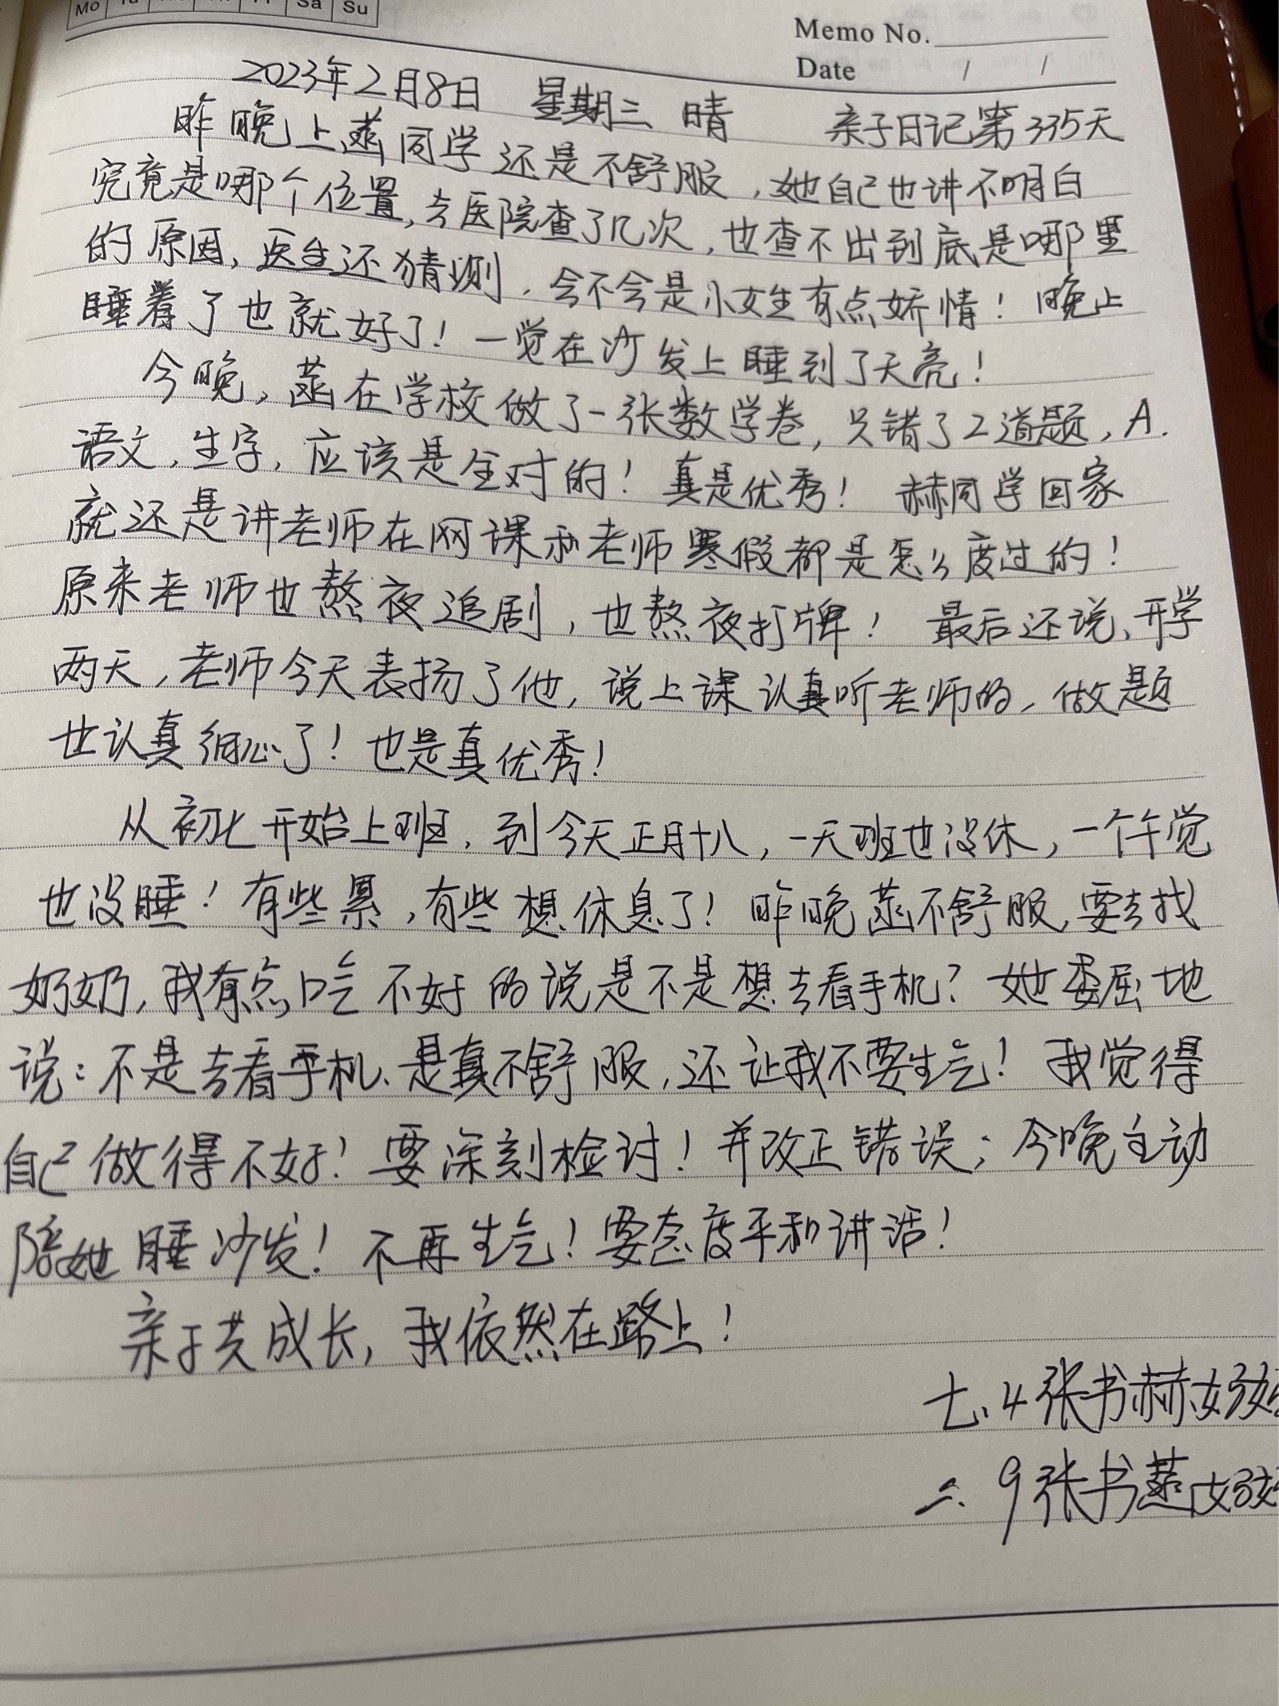 Mo Sa Su
Memo No.
Date / /
2023年2月8日 星期三 晴 亲子日记第335天
昨晚上菡同学还是不舒服，她自己也讲不明白
究竟是哪个位置，去医院查了几次，也查不出到底是哪里
的原因，医生还猜测，会不会是小女生有点娇情！晚上
睡着了也就好了！一觉在沙发上睡到了天亮！
今晚，菡在学校做了一张数学卷，只错了2道题，A.
语文，生字，应该是全对的！真是优秀！赫同学回家
就还是讲老师在网课和老师寒假都是怎么度过的！
原来老师也熬夜追剧，也熬夜打牌！最后还说、开学
两天，老师今天表扬了他，说上课认真听老师的，做题
也认真细心了！也是真优秀！
从初七开始上班，到今天正月十八，一天班也没休，一个午觉
也没睡！有些累，有些想休息了！昨晚菡不舒服，要去找
奶奶，我有点口气不好的说是不是想去看手机？她委屈地
说：不是去看手机、是真不舒服，还让我不要生气！我觉得
自己做得不好！要深刻检讨！并改正错误；今晚主动
陪她睡沙发！不再生气！要态度平和讲话！
亲子共成长，我依然在路上！
七.4张书赫妈妈
二.9张书菡妈妈